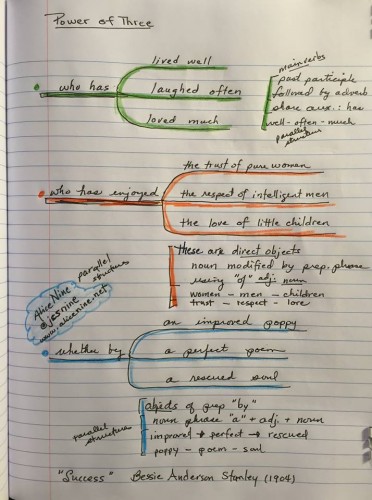 Power of Three
lived well
who has laughed often
loved much
main verbs
past participle
followed by adverb
share aux.: has
well - often - much
parallel structure
the trust of pure women
who has enjoyed the respect of intelligent men
the love of little children
these are direct objects
noun modified by prep. phrase
using "of" adj. noun
women - men - children
trust - respect - love
parallel structure
Alice Nine
@jesnine
www.alicenine.net
an improved poppy
whether by a perfect poem
a rescued soul
objects of prep "by"
noun phrase "a" + adj. + noun
improved → perfect → rescued
poppy - poem - soul
parallel structure
"Success" Bessie Anderson Stanley (1904)